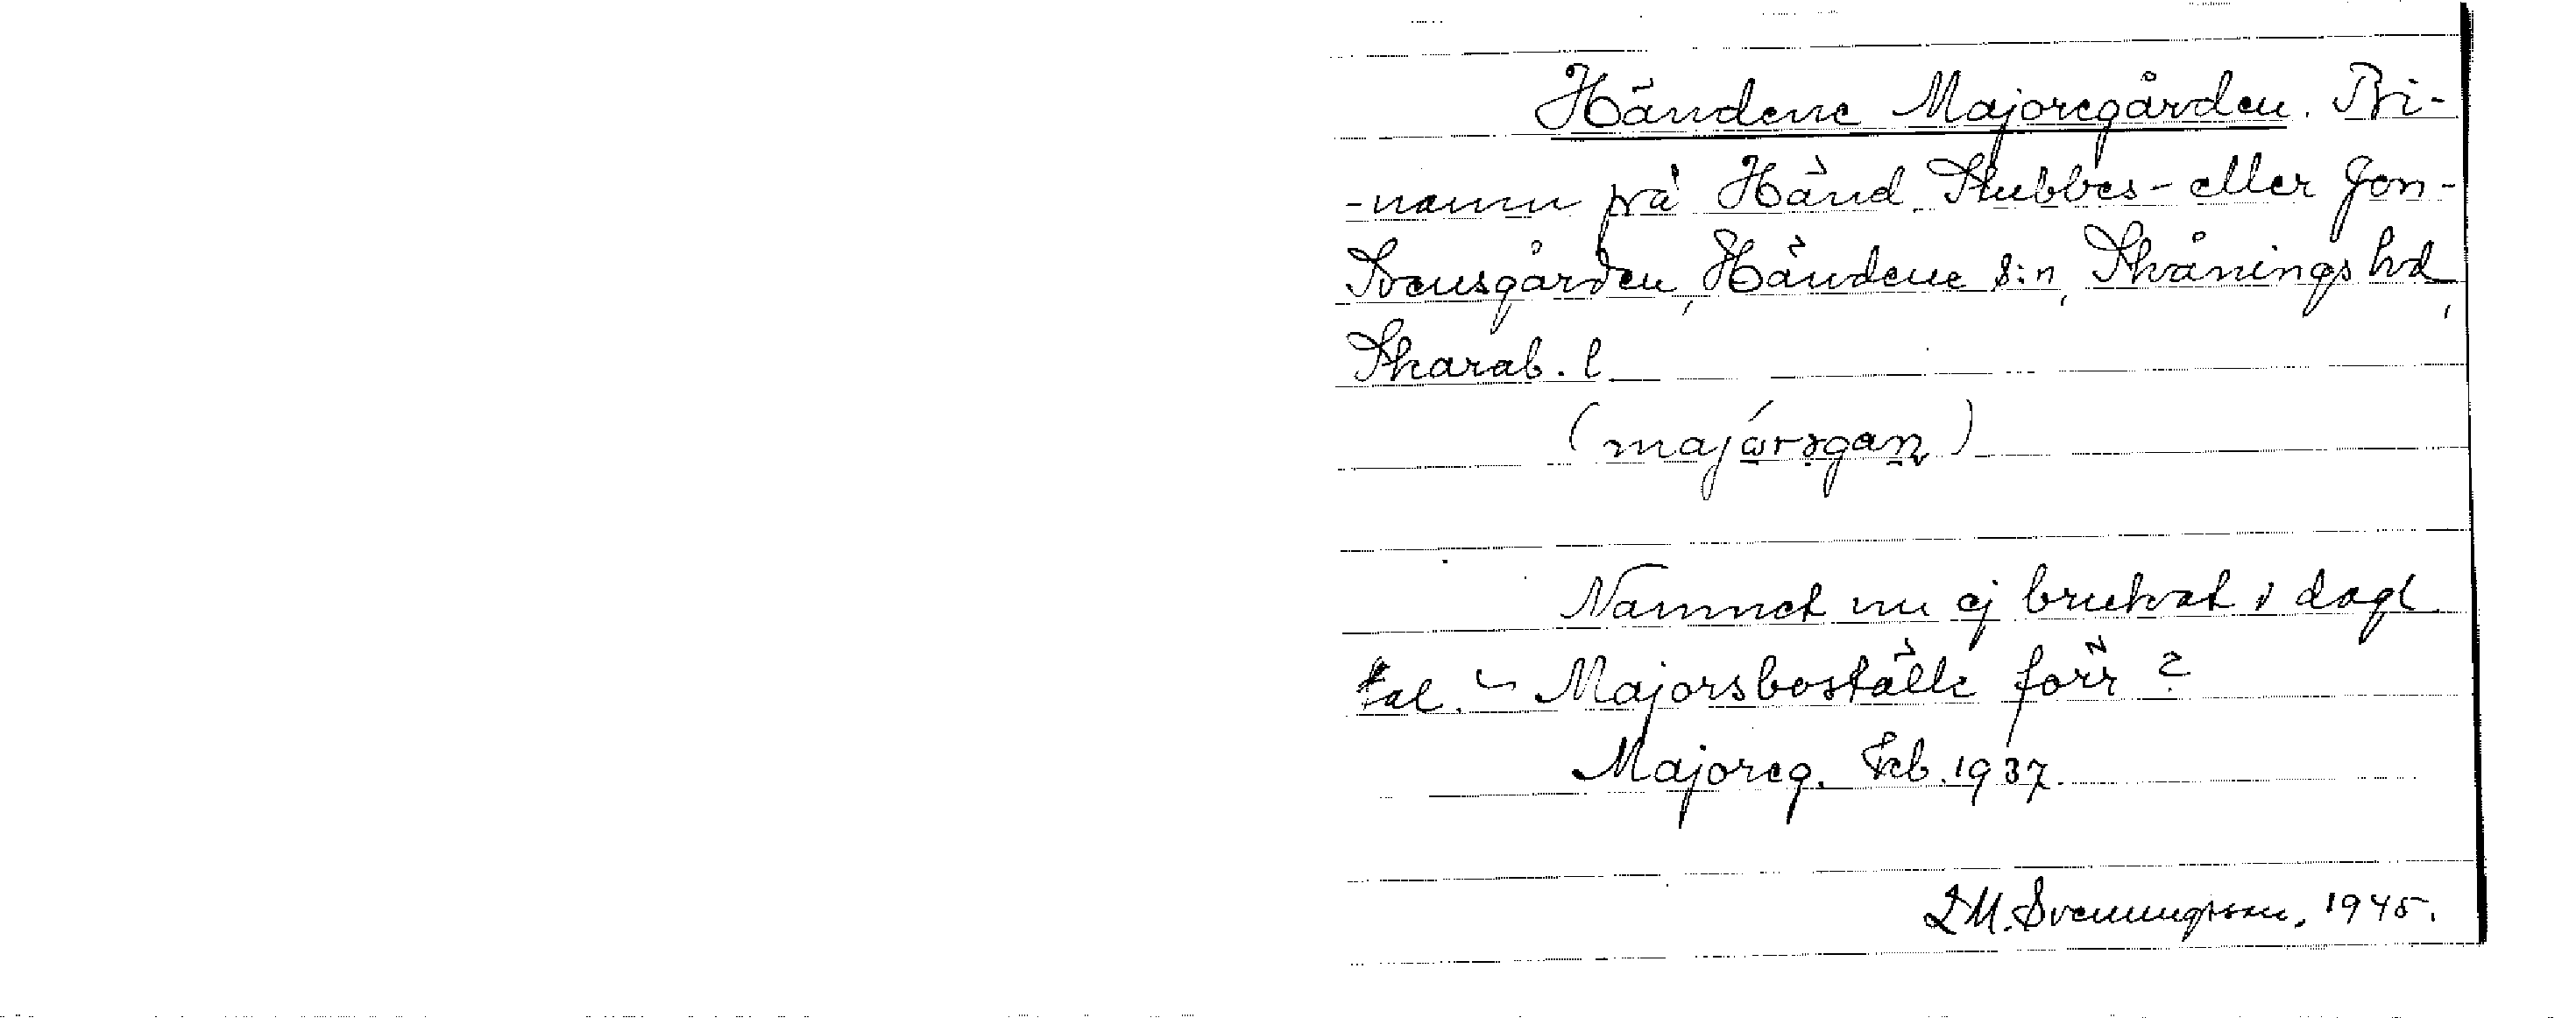 Händene Majoregården. Bi-
-namn på Händ. Stubbes- eller Jon-
Svensgården, Händene s:n, Skånings hd,
Skarab. l
(majórəgaṇ)
Namnet nu ej brukat i dagl.
tal. ~ Majorsboställe förr?
Majoreg. Feb. 1937.
L M. Svenungsson, 1945.